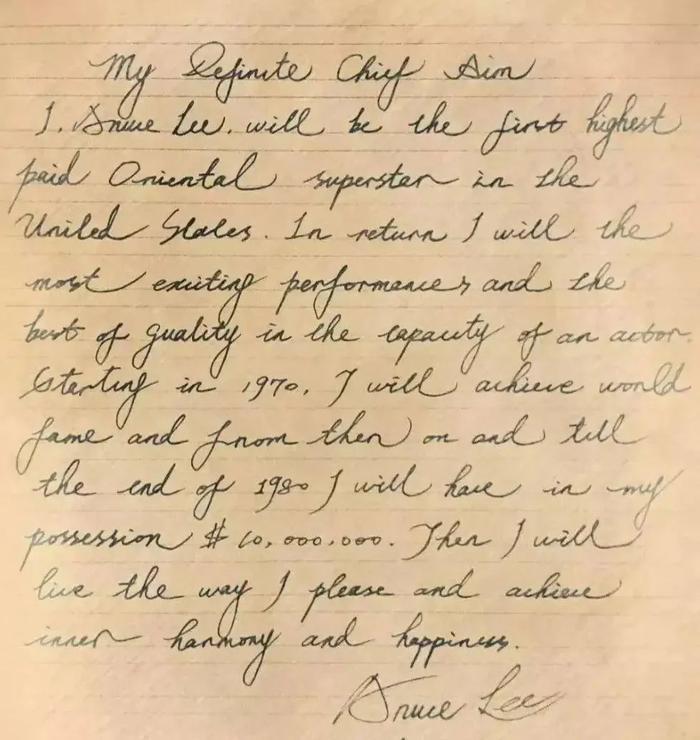 My Definite Chief Aim
I, Bruce Lee, will be the first highest
paid Oriental superstar in the
United States. In return I will the
most exciting performances and the
best of quality in the capacity of an actor.
Starting in 1970, I will achieve world
fame and from then on and till
the end of 1980 I will have in my
possession $10,000,000. Then I will
live the way I please and achieve
inner harmony and happiness.
Bruce Lee